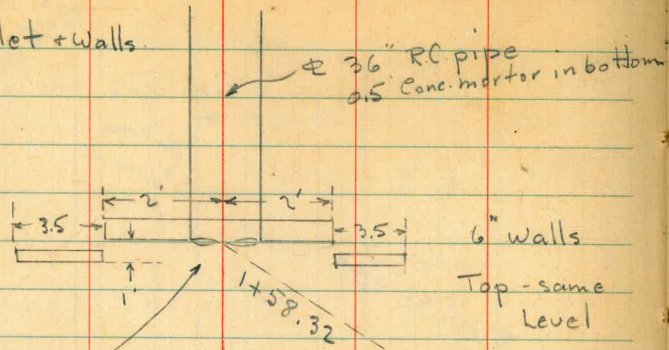 let & walls.
℄ 36" R.C. pipe
0.5 Conc. mortor in bottom
2' 2'
3.5 3.5 6" walls
1' 1+58.32 Top - same
Level